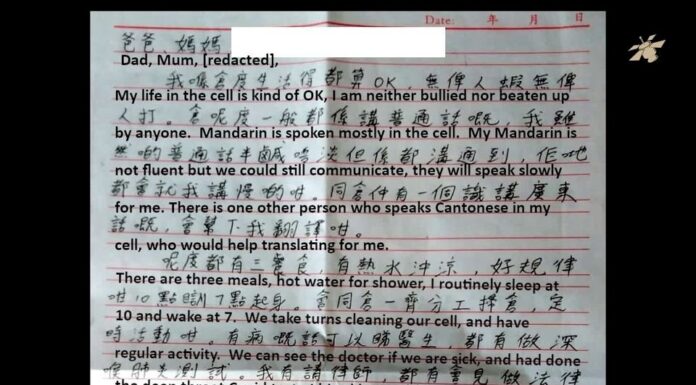 Date: 年 月 日
爸爸、媽媽
Dad, Mum, [redacted],
我喺倉度生活得都算OK，無俾人蝦無俾
My life in the cell is kind of OK, I am neither bullied nor beaten up
人打。倉呢度一般都係講普通話嘅，我雖
by anyone. Mandarin is spoken mostly in the cell. My Mandarin is
然啲普通話半鹹唔淡但係都溝通到，佢哋
not fluent but we could still communicate, they will speak slowly
都會就我講慢啲咁。同倉仲有一個識講廣東
for me. There is one other person who speaks Cantonese in my
話嘅，會幫下我翻譯咁。
cell, who would help translating for me.
呢度都有三餐食，有熱水沖涼，好規律
There are three meals, hot water for shower, I routinely sleep at
咁10點瞓7點起身。會同倉一齊分工擦倉，定
10 and wake at 7. We take turns cleaning our cell, and have
時活動咁。有病嘅話可以睇醫生，都有做深
regular activity. We can see the doctor if we are sick, and had done
喉肺炎測試。我有請律師，都有會見做法律